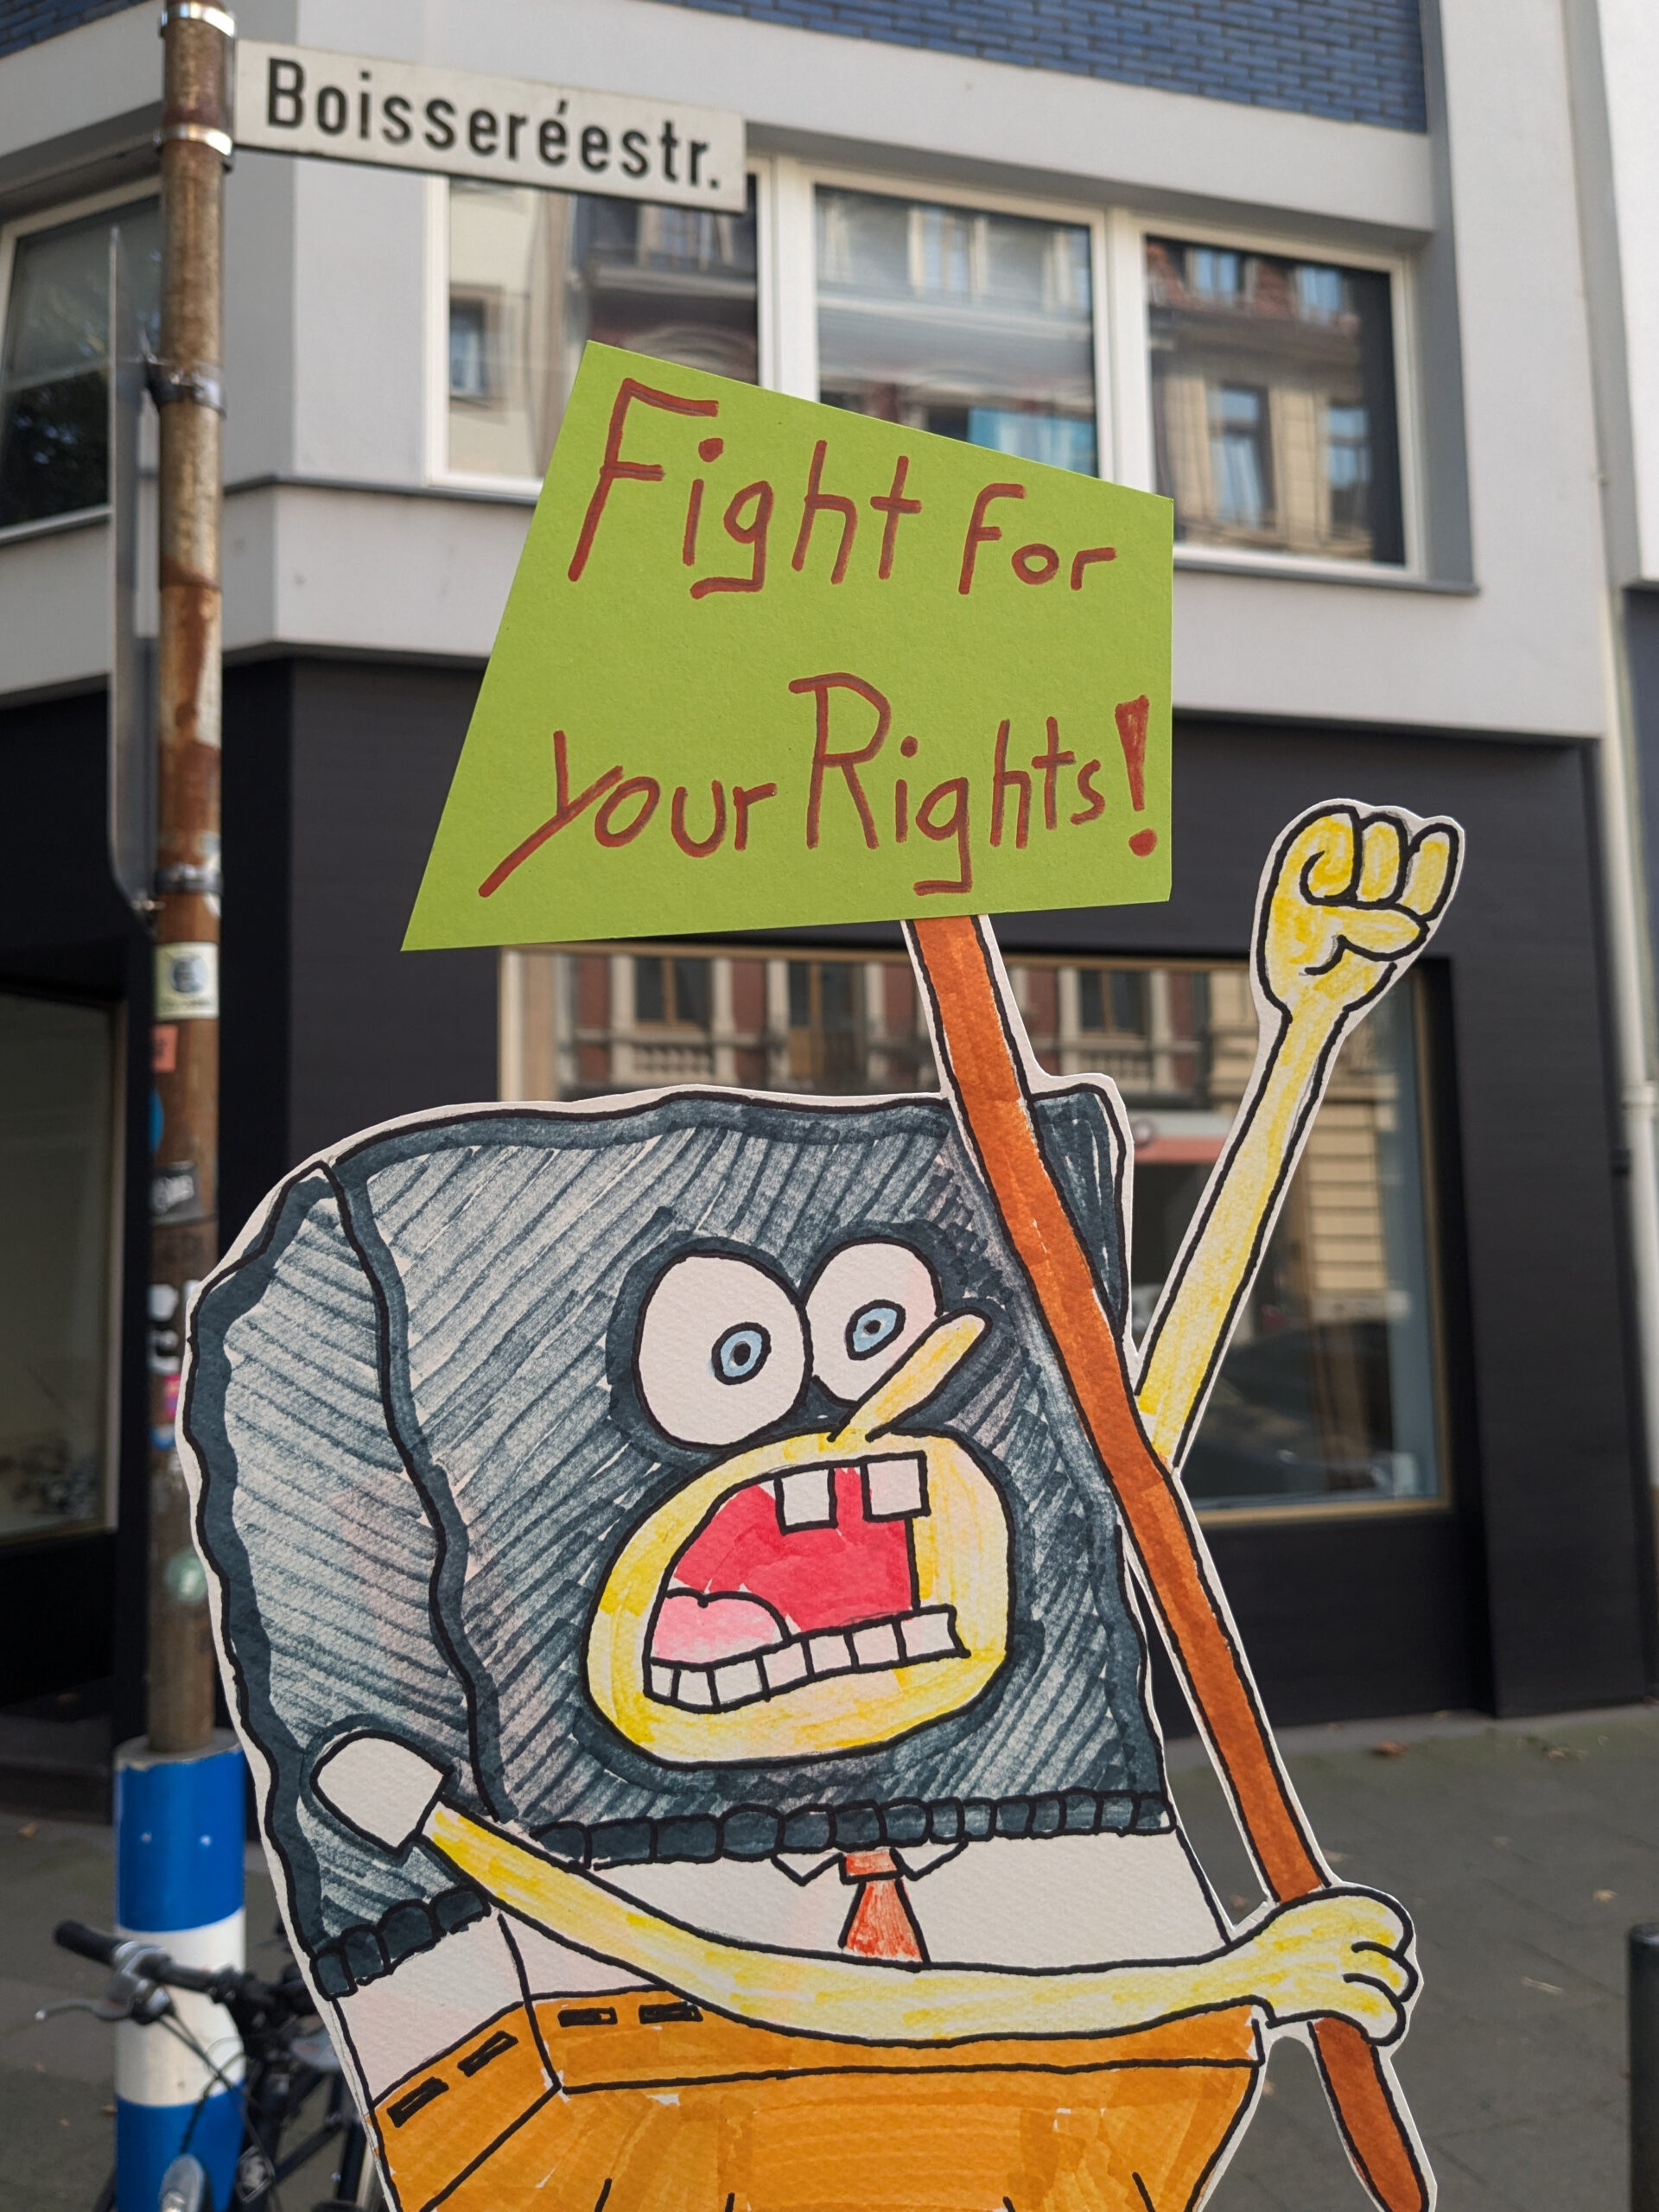 Boisseréestr.
Fight for
your Rights!